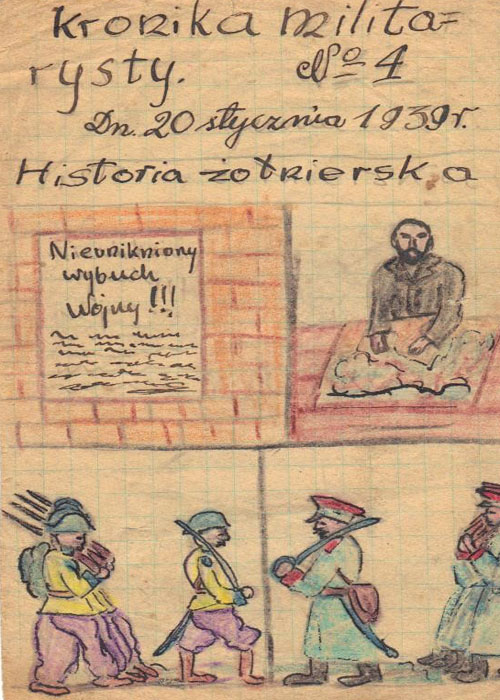 Kronika milita=
rysty. № 4
Dn. 20 stycznia 1939 r.
Historia żołnierska
Nieunikniony
wybuch
wojny!!!